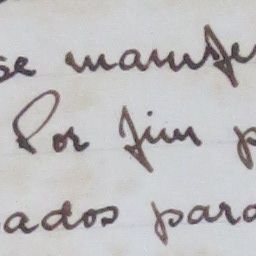 se manife
Por fin p
ados para